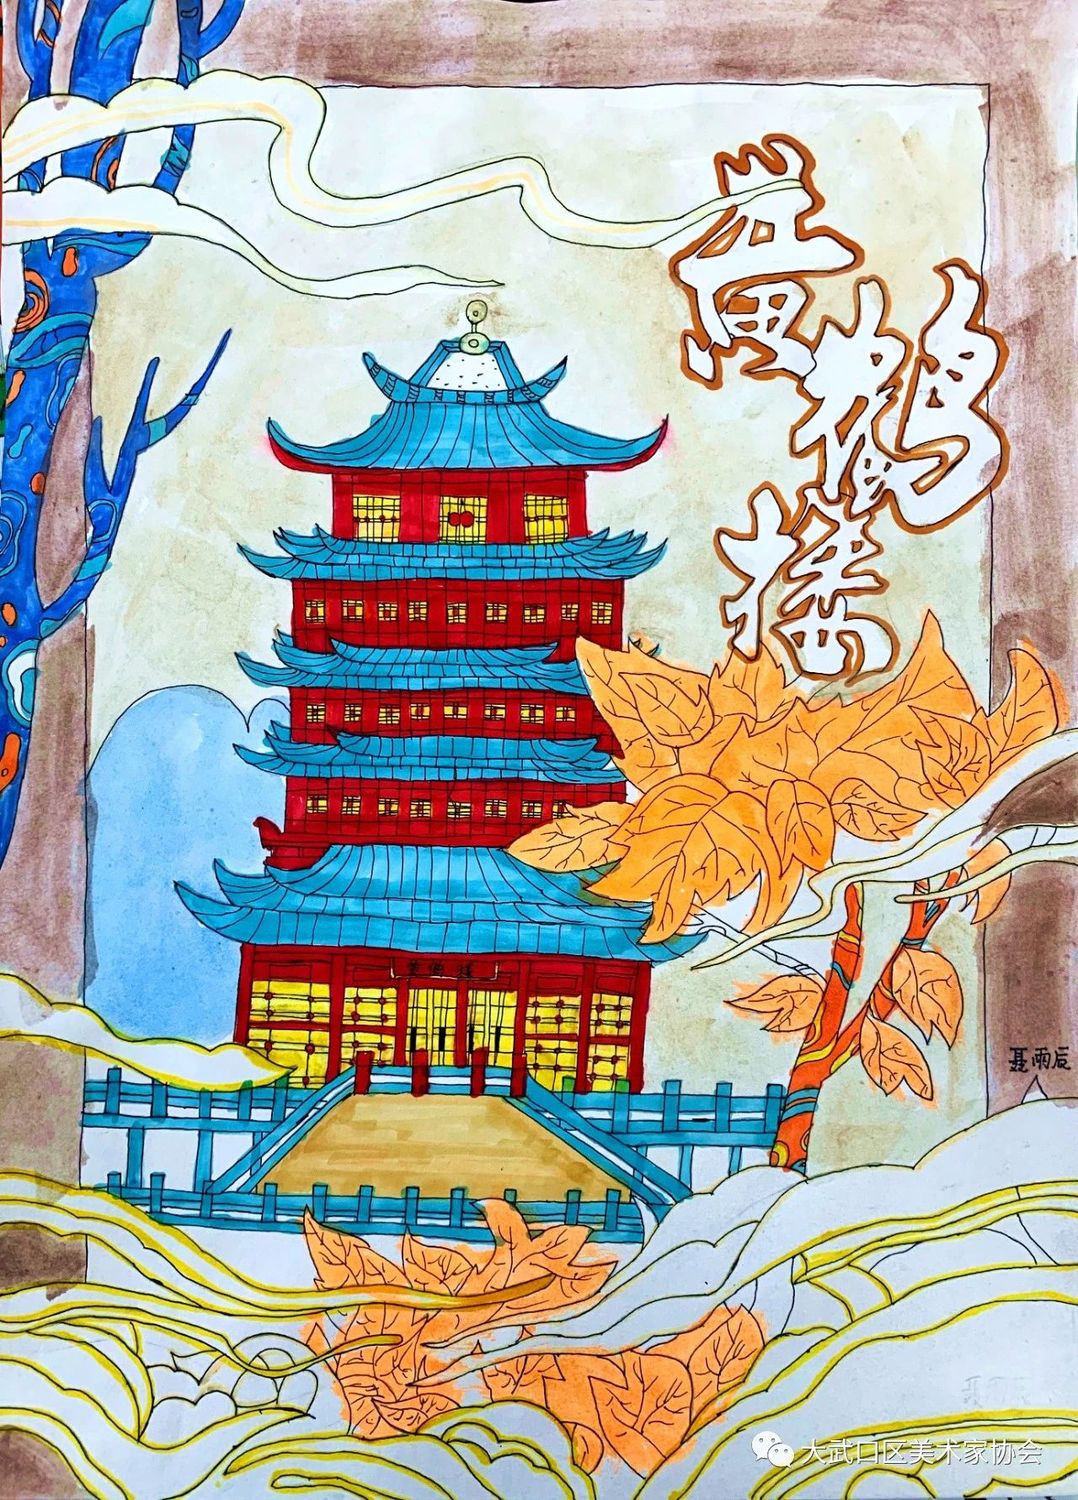 黄鹤楼
黄鹤楼
聂雨辰
大武口区美术家协会